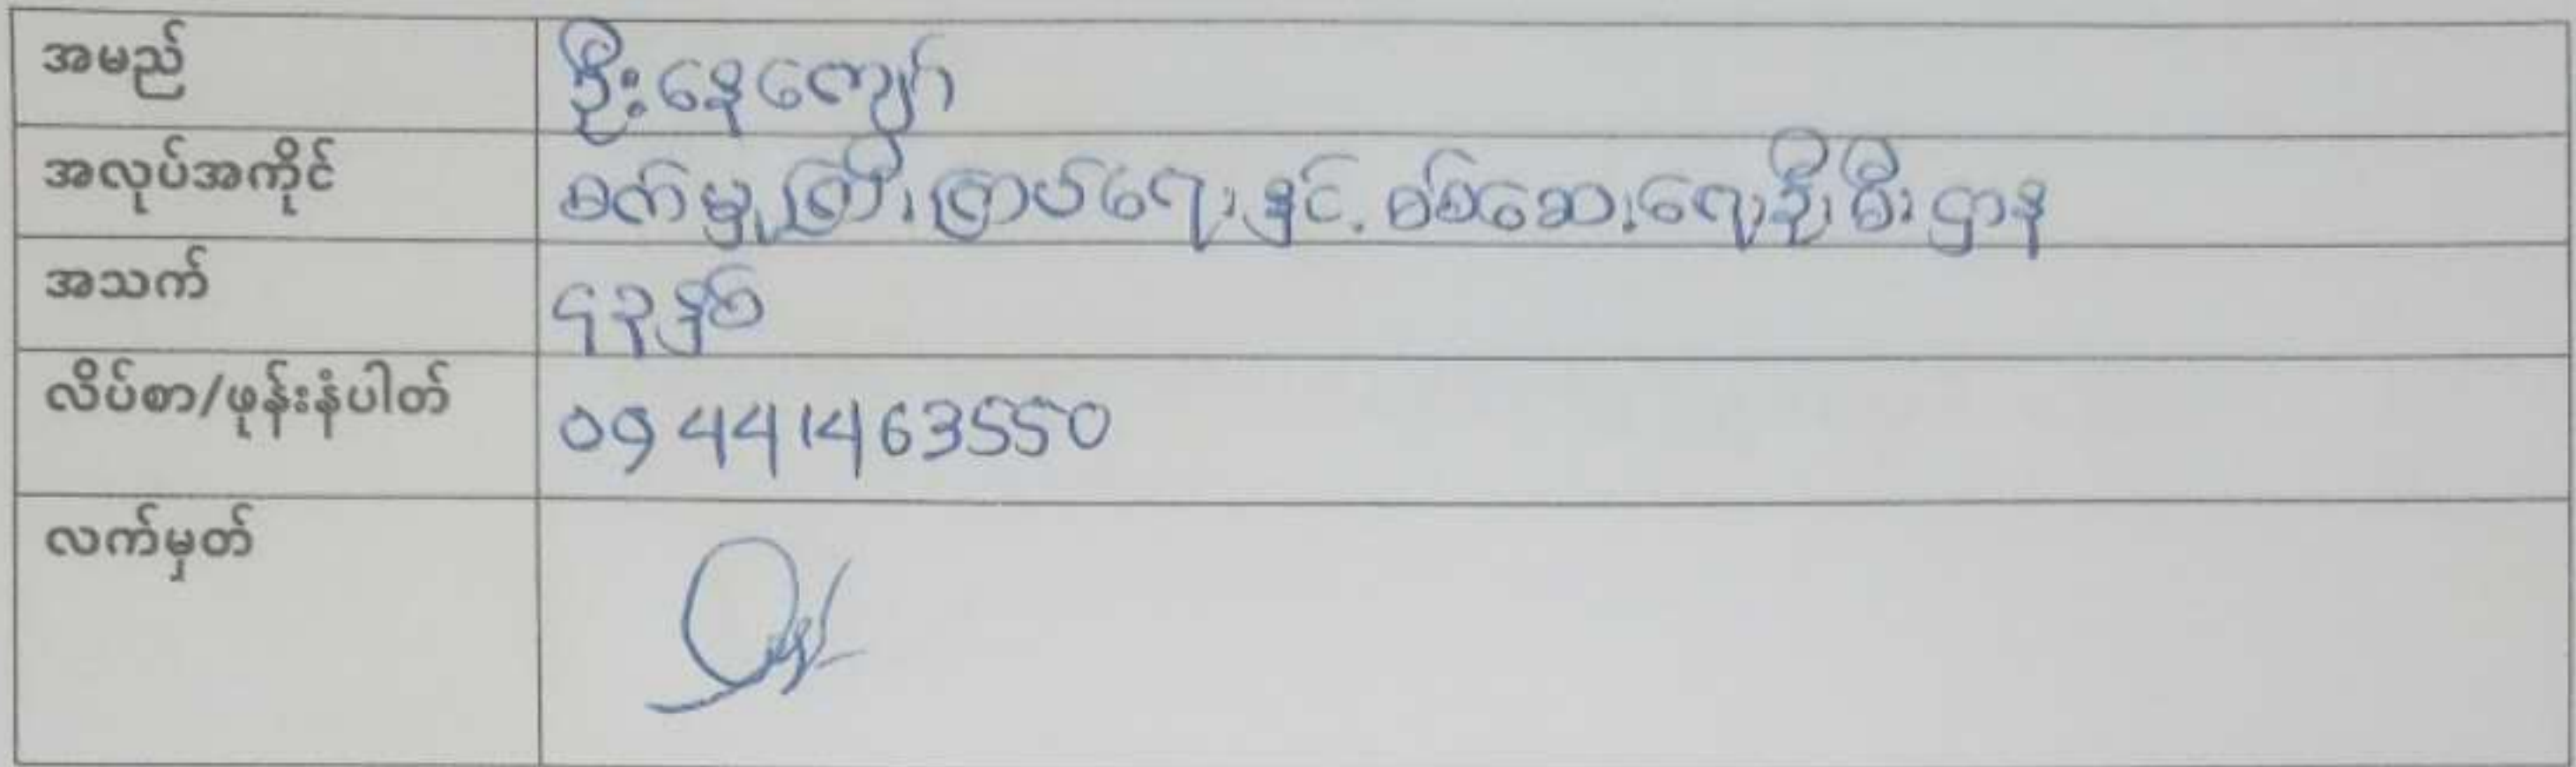 အမည် ဦးနေကျော်
အလုပ်အကိုင် စက်မှုကြီးကြပ်ရေးနှင့် စစ်ဆေးရေးဦးစီးဌာန
အသက် ၄၃နှစ်
လိပ်စာ/ဖုန်းနံပါတ် 09 441463550
လက်မှတ်